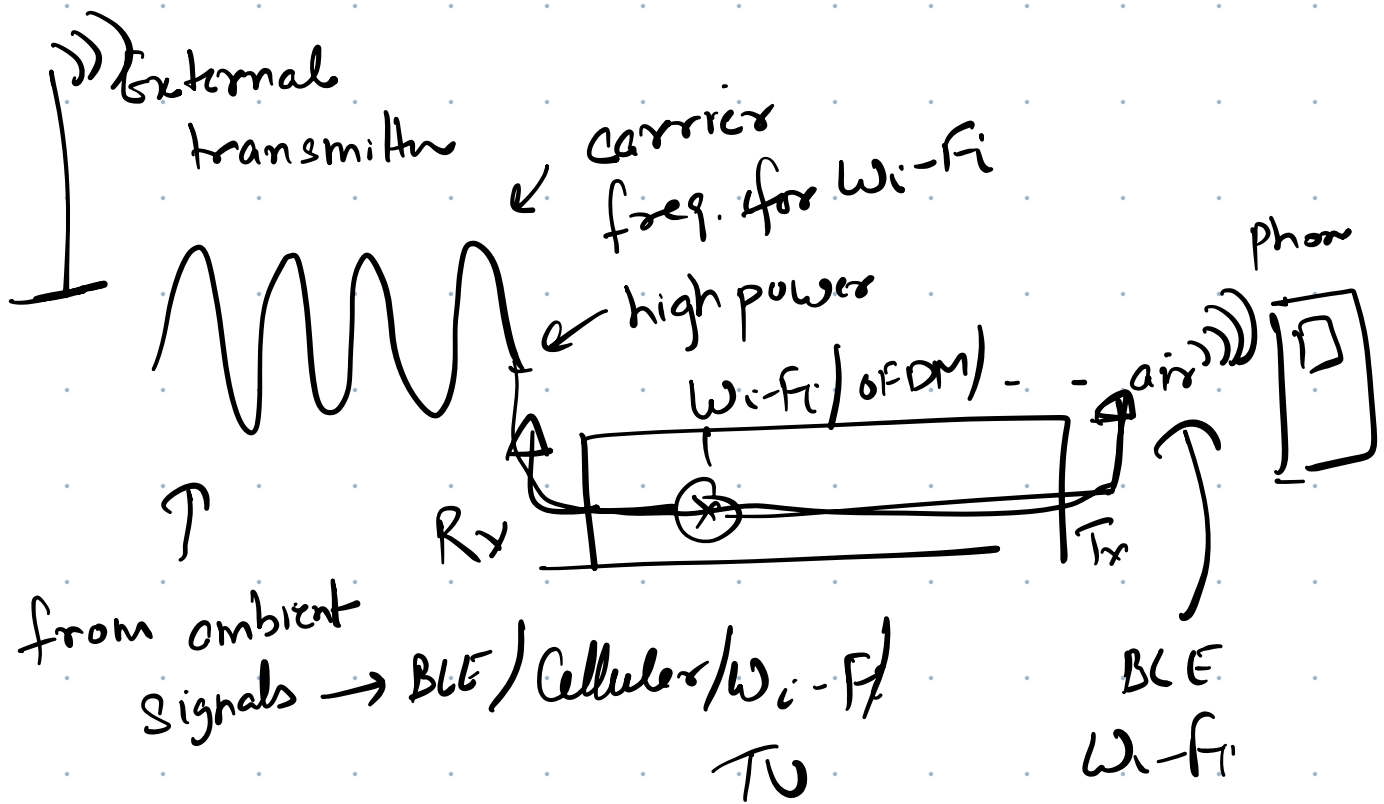 External
transmitter
carrier
freq. for Wi-Fi
high power
Phone
Wi-Fi/OFDM/- -
air
Rx
Tx
from ambient
signals → BLE/Cellular/Wi-Fi/
TV
BLE
Wi-Fi